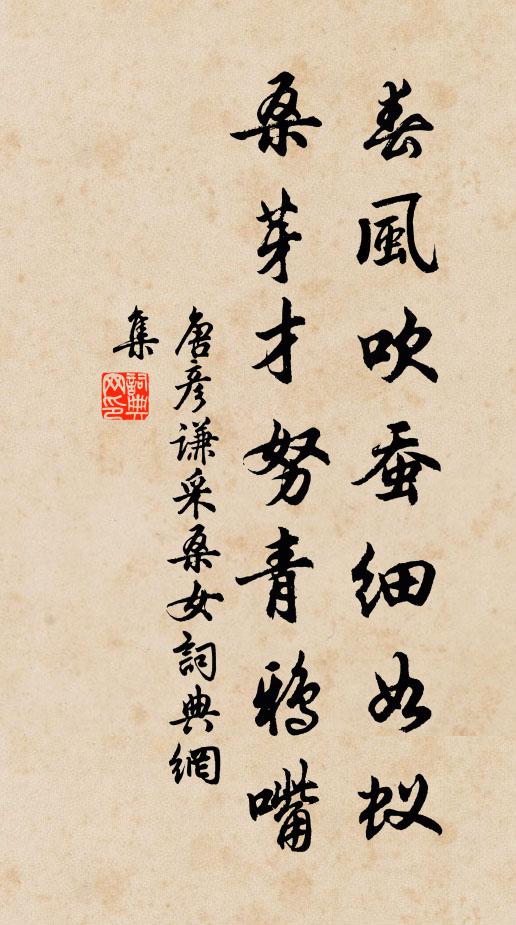 春風吹蚕細如蚁
桑芽才努青鴉嘴
唐彦謙采桑女詞典網
集
詞典
网印